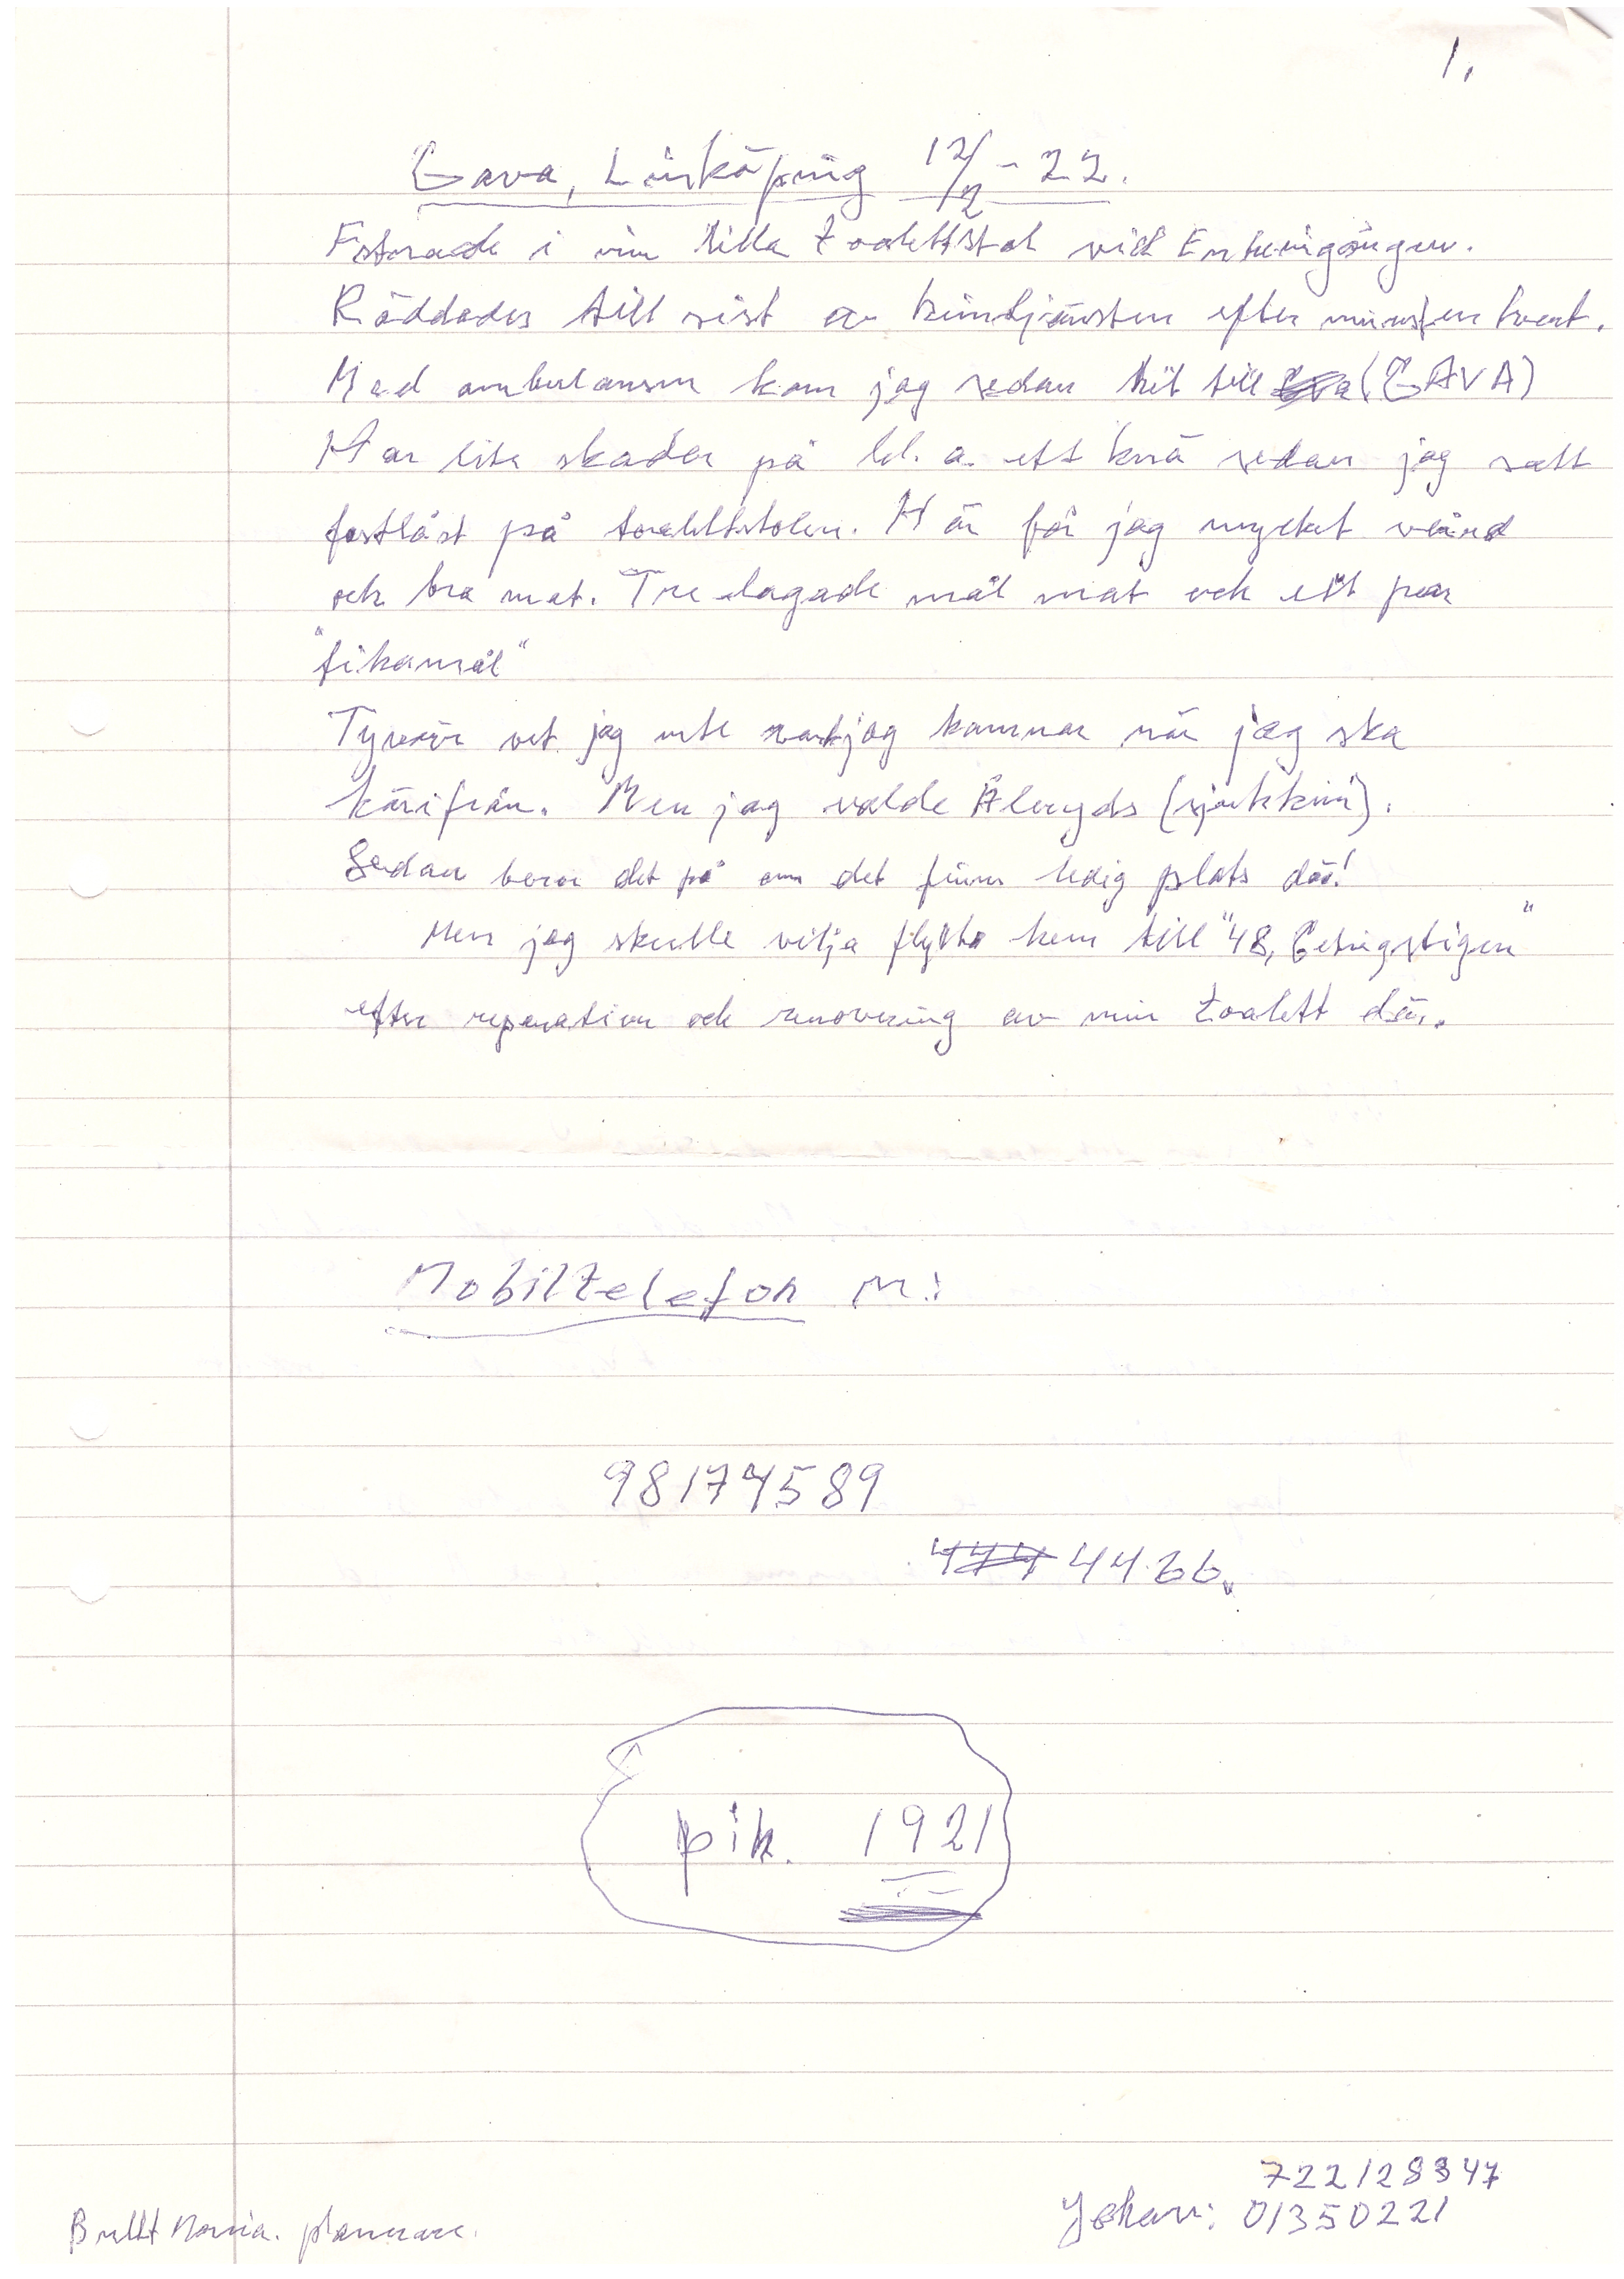 1.
Gava, Linköping 12/2-22.
Fstnade i min lilla toalettstol vid Entreingången.
Räddades till sist av hemtjänsten efter minst en kvart.
Med ambulansen kom jag sedan hit till (GAVA)
Har lite skador på bl. a. ett knä sedan jag satt
fastlåst på toalettstolen. Här får jag mycket vård
och bra mat. Tre lagade mål mat och ett par
"fikamål"
Tyvärr vet jag inte vart jag hamnar när jag ska
härifrån. Men jag valde Åleryds (sjukhem).
Sedan beror det på om det finns ledig plats där!
Men jag skulle vilja flytta hem till "48, Getingstigen"
efter reparation och renovering av min toalett där.
Mobiltelefon nr:
98174589
44.66.
pik. 1921
722128347
Johan: 01350221
Britt Maria. planerare.